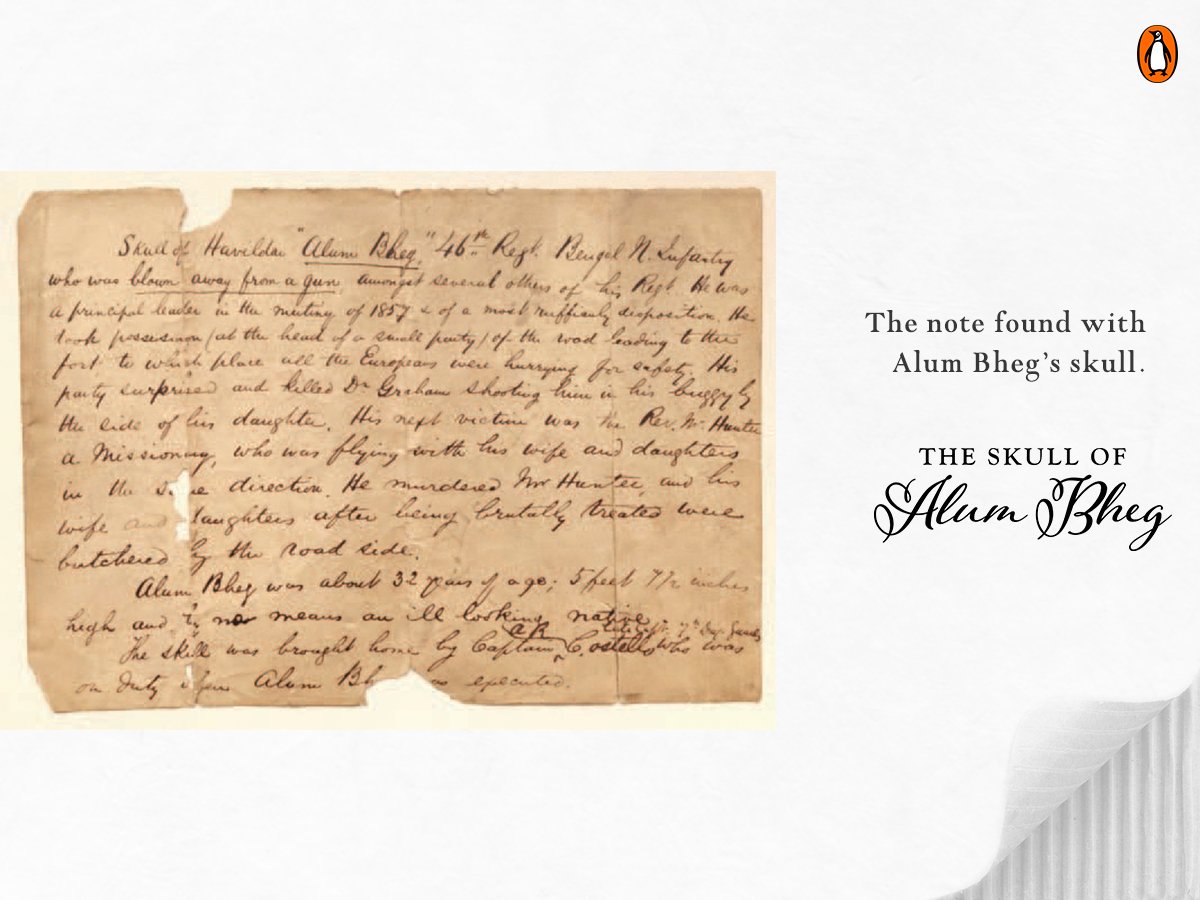 Skull of Havildar "Alum Bheg," 46th Regt. Bengal N. Infantry
who was blown away from a gun amongst several others of his Regt. He was
a principal leader in the mutiny of 1857 & of a most ruffianly disposition. He
took possession (at the head of a small party) of the road leading to the
fort to which place all the Europeans were hurrying for safety. His
party surprised and killed Dr. Graham shooting him in his buggy by
the side of his daughter. His next victim was the Rev. Mr. Hunter
a Missionary, who was flying with his wife and daughters
in the direction. He murdered Mr Hunter, and his
wife and daughters after being brutally treated were
butchered by the road side.
Alum Bheg was about 32 years of age; 5 feet 7½ inches
high and by no means an ill looking native.
The skull was brought home by Captain A.R. Costello who was
on duty when Alum Bh as executed.
The note found with
Alum Bheg's skull.
THE SKULL OF
Alum Bheg